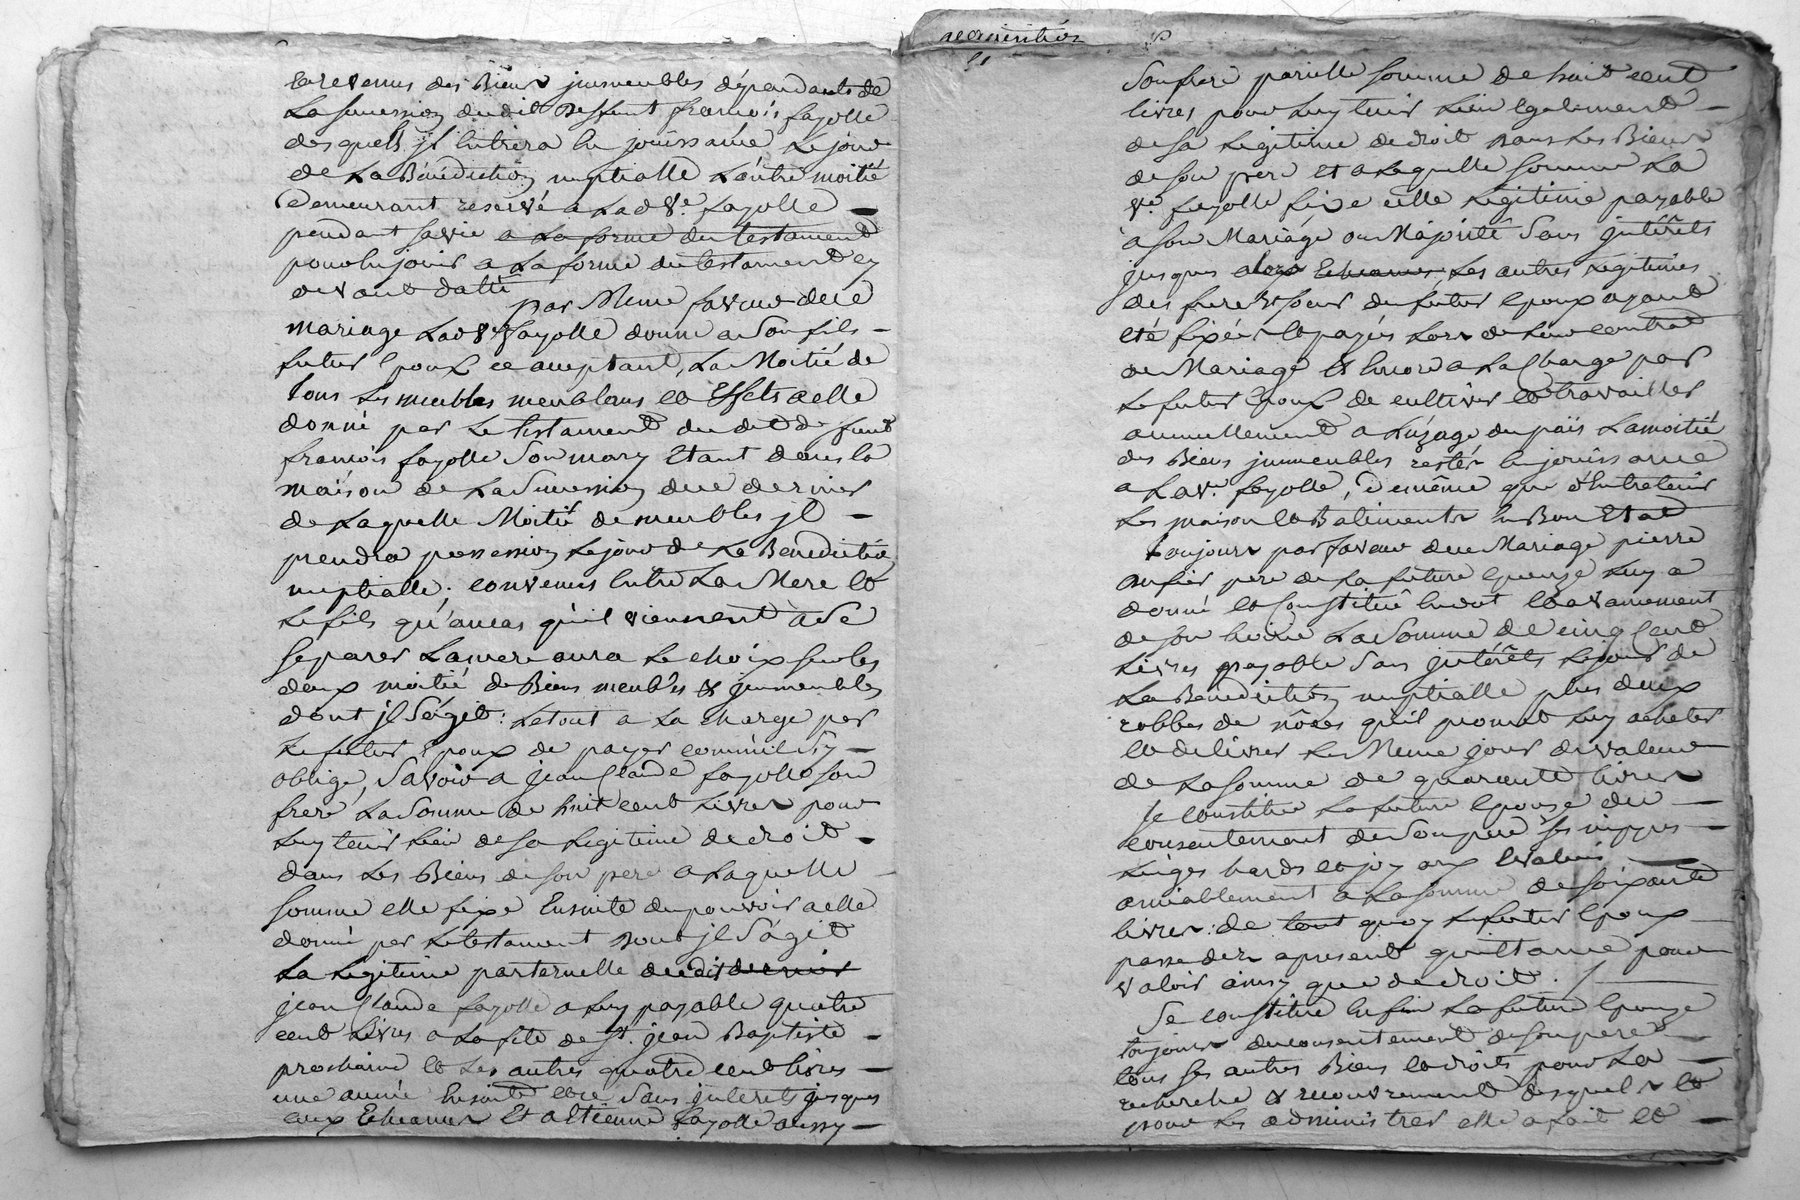 et revenus des Biens jmmeubles dépendants de
La succession dudit deffunt françois fayolle
desquels jl Entrera En jouissance Le jour
de La Bénédiction nuptialle L'autre moitié
Demeurant reservé a Lad. ve. fayolle
pendant sa vie a La forme du testament
pour En jouir a La forme du testament cy
devant datté
par Meme faveur de ce
mariage Lad. ve fayolle donne a Son fils
futur Epoux ce acceptant, La Moitié de
tous Les meubles meublans et Effets a elle
donné par Le testament dudit defunt
francois fayolle Son mary Etant dans la
maison de La Succession de ce dernier
de Laquelle Moitié de meubles jl
prendra possession Le jour de La Benediction
nuptialle; convenus Entre La Mere et
Le fils qu'aucas qu'il viennent a Se
Separer La mere aura Le choix sur les
deux moitié de Biens meubles & jmmeubles
dont jl S'agit: Le tout a La charge par
Le futur Epoux de payer comme il s'y
oblige, Savoir a jean Claude fayolle son
frere La Somme de huit cent Livres pour
Luy tenir Lieu de Sa Legitime de droit
dans Les Biens de Son pere a Laquelle
Somme elle fixe Ensuite du pouvoir a elle
donné par Le testament dont jl S'agit
La Légitime parternelle dudit dernier
jean Claude fayolle a Luy payable quatre
cent Livres a La fête de St. jean Baptiste
prochaine et Les autres quatre cent livres
une année Ensuite et ce Sans jnterets jusques
aux Echeances Et a Etienne fayolle aussy
acquisition
Son frere parielle Somme de huit cent
livres pour Luy tenir Lieu Egalement
de Sa Legitime de droit dans Les Biens
de Son pere Et a Laquelle Somme La
ve. fayolle fixe cette Legitime payable
a Son Mariage ou Majorité Sans jntérêts
jusques alors Echeances, Les autres Legitimes
des frere & soeur du futur Epoux ayant
été fixées et payés Lors de Leur contrat
de Mariage Et Encore a La Charge par
Le futur Epoux de cultiver et travailler
annuellement a L'uzage du païs La moitié
des Biens jmmeubles restés En jouissance
a La ve. fayolle, de même que d'Entretenir
Les maison et Batiments En Bon Etat
Toujours par faveur de ce Mariage pierre
pere de La future Epouze Luy a
donné et Constitué En dot et avancement
de Son hoirie La Somme de cinq Cent
Livres payable Sans jntérêts Le jour de
La Benediction nuptialle plus deux
robbes de nôces qu'il promet Luy acheter
et delivrer Le Meme jour de valeur
de La Somme de quarante livres
Se Constitue La future Epouze du
consentement de Son pere Ses nippes
Linges hards et joyaux Evalués
amiablement a La Somme de Soixante
livres: de tout quoy Le futur Epoux
passe dez apresent quittance pour
valoir ainsy que de droit.
Se constitue Enfin La future Epouze
toujours du consentement de Son pere
tous Ses autres Biens et droits pour La
recherche & recouvrement desquels et
pour Les administrer elle a fait et